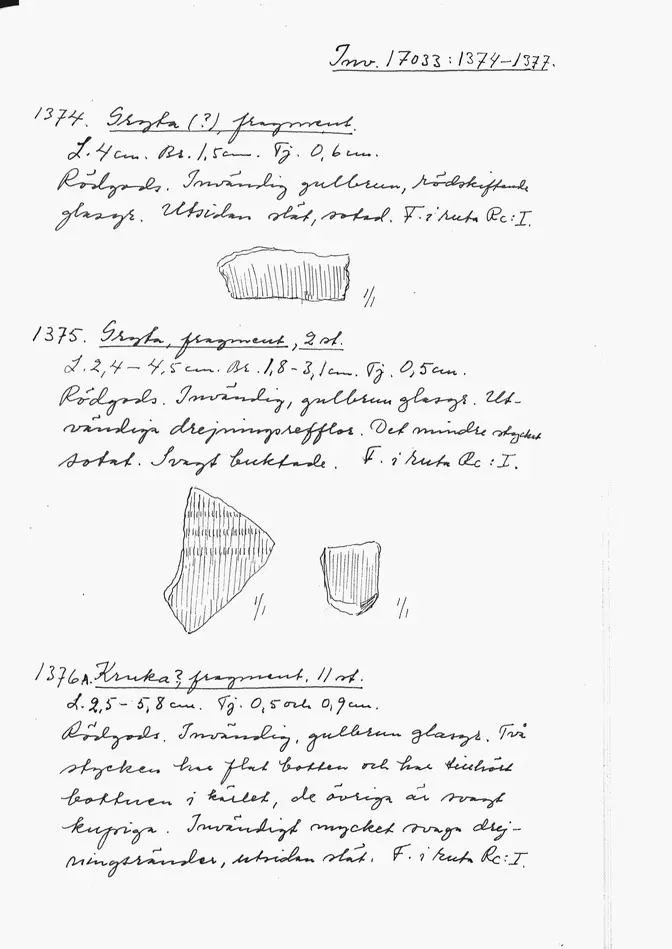 Inv. 17033:1374-1377.
1374. Gryta (?), fragment.
L. 4 cm. Br. 1,5 cm. Tj. 0,6 cm.
Rödgods. Invändig gulbrun, rödskiftande
glasyr. Utsidan slät, sotad. F. i ruta Rc:I.
1/1
1375. Gryta, fragment, 2 st.
L. 2,4 - 4,5 cm. Br. 1,8 - 3,1 cm. Tj. 0,5 cm.
Rödgods. Invändig, gulbrun glasyr. Ut-
vändiga drejningsrefflor. Det mindre stycket
sotat. Svagt buktade. F. i ruta Rc:I.
1/1 1/1
1376A. Kruka?, fragment, 11 st.
L. 2,5 - 5,8 cm. Tj. 0,5 och 0,9 cm.
Rödgods. Invändig, gulbrun glasyr. Två
stycken har flat botten och har tillhört
bottnen i kärlet, de övriga är svagt
kupiga. Invändigt mycket svaga drej-
ningsränder, utsidan slät. F. i ruta Rc:I.